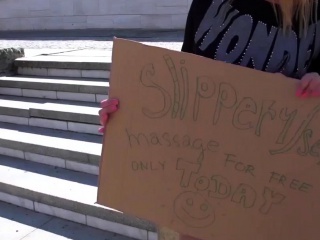 WONDE
Slippery/se
massage FOR FREE
ONLY TODAY